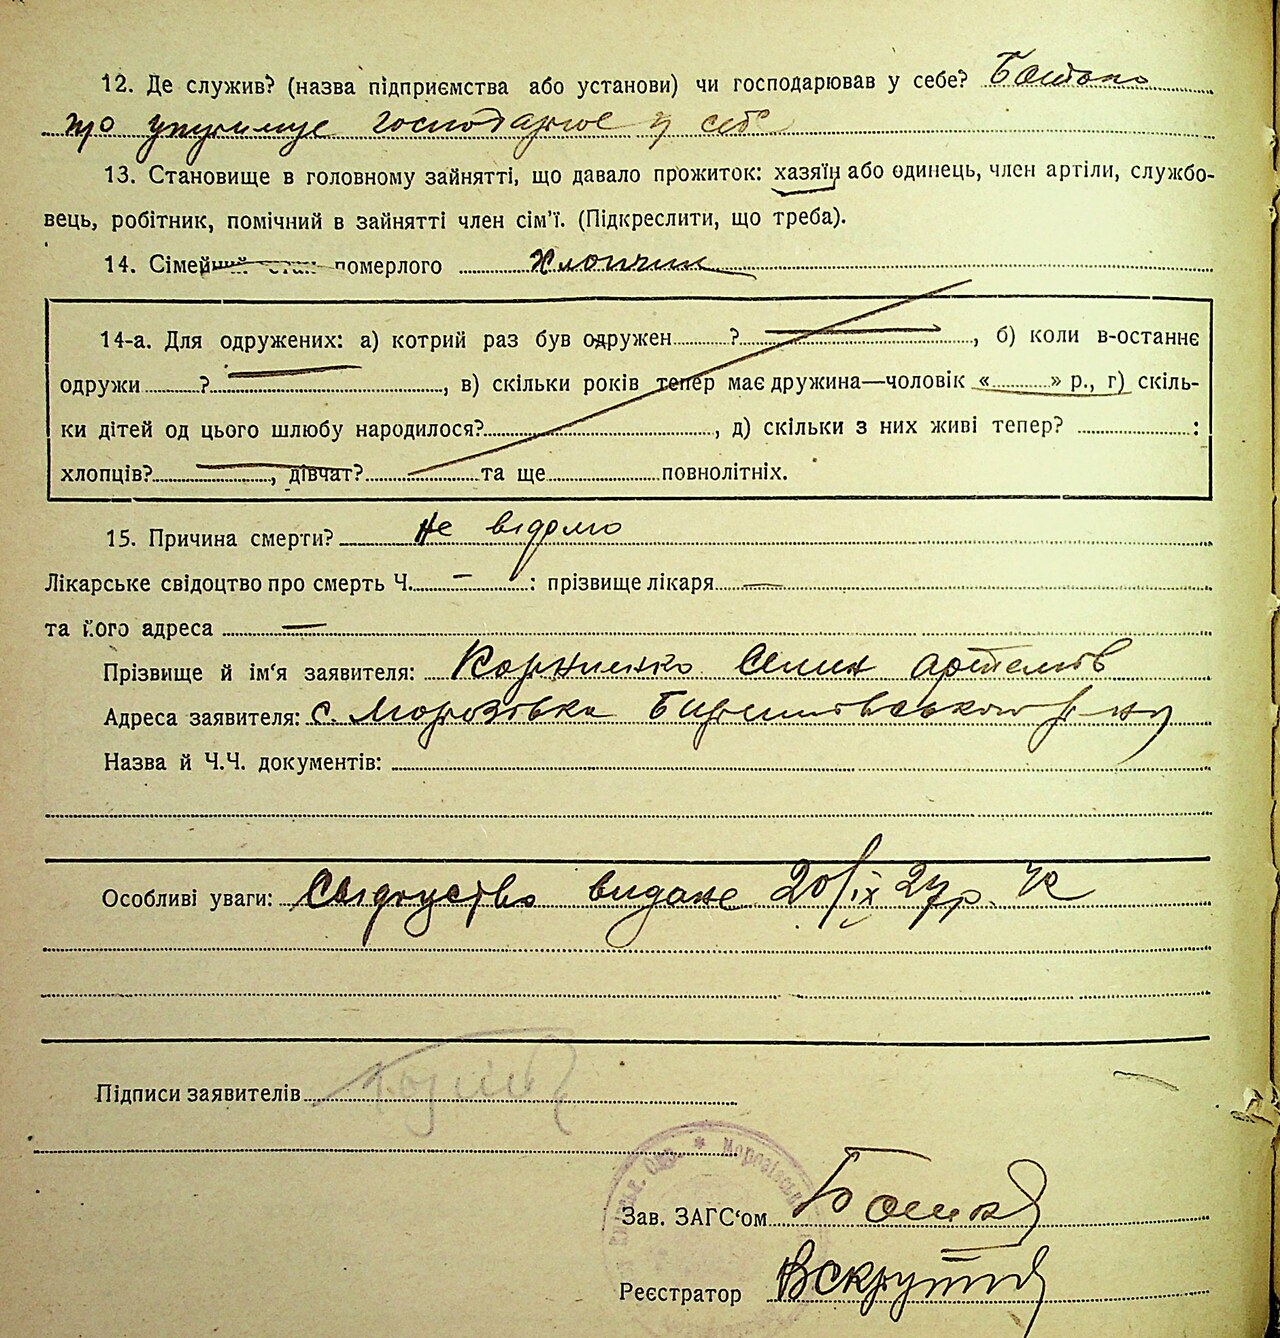 12. Де служив? (назва підприємства або установи) чи господарював у себе? Батько
що утримує господарює у себе
13. Становище в головному зайнятті, що давало прожиток: хазяїн або одинець, член артіли, службо-
вець, робітник, помічний в зайнятті член сім'ї. (Підкреслити, що треба).
14. Сімейний стан померлого хлопчик
14-а. Для одружених: а) котрий раз був одружен ? , б) коли в-останнє
одружи ? , в) скільки років тепер має дружина—чоловік « » р., г) скіль-
ки дітей од цього шлюбу народилося? , д) скільки з них живі тепер? :
хлопців? , дівчат? та ще повнолітніх.
15. Причина смерти? Не відомо
Лікарське свідоцтво про смерть Ч. — : прізвище лікаря —
та його адреса —
Прізвище й ім'я заявителя: Корниенко Семен Артемів
Адреса заявителя: с. Морозівка Баришівського р-ну
Назва й Ч.Ч. документів:
Особливі уваги: Свідоцтво видане 20/ІХ 27 р.
Підписи заявителів
Морозівськ
Зав. ЗАГС'ом
Реєстратор